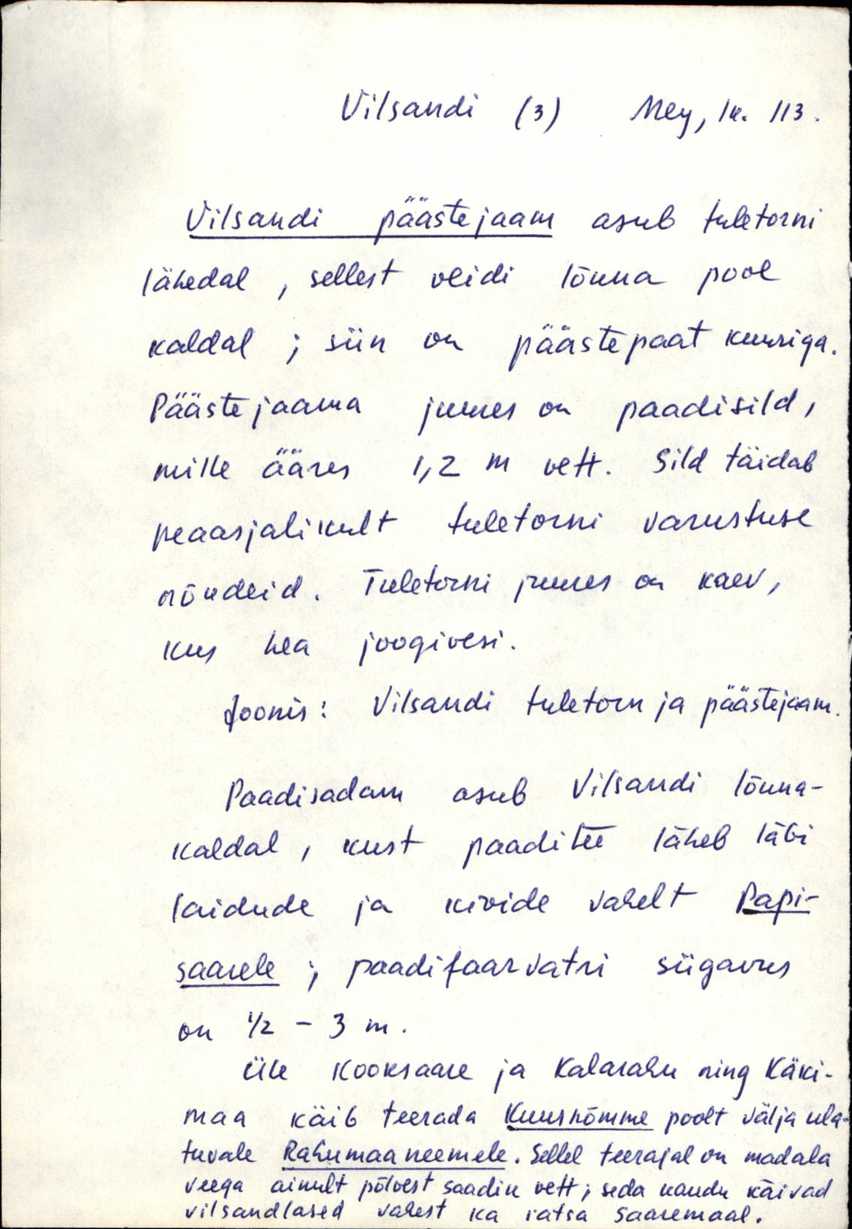 Vilsandi (3) Mey, lk. 113.
Vilsandi päästejaam asub tuletorni
lähedal, sellest veidi lõuna pool
kaldal; siin on päästepaat kuuriga.
Päästejaama juures on paadisild,
mille ääres 1,2 m vett. Sild täidab
peaasjalikult tuletorni varustuse
nõudeid. Tuletorni juures on kaev,
kus hea joogivesi.
Joonis: Vilsandi tuletorn ja päästejaam.
Paadisadam asub Vilsandi lõuna-
kaldal, kust paaditee läheb läbi
laidude ja kivide vahelt Papi-
saarele; paadifaarvatri sügavus
on 1/2 - 3 m.
Üle Kooksaare ja Kalarahu ning Käki-
maa käib teerada Kuusnõmme poolt välja ula-
tuvale Rahumaa neemele. Sellel teerajal on madala
veega ainult põlvest saadik vett; seda kaudu käivad
vilsandlased vahest ka ratsa Saaremaal.